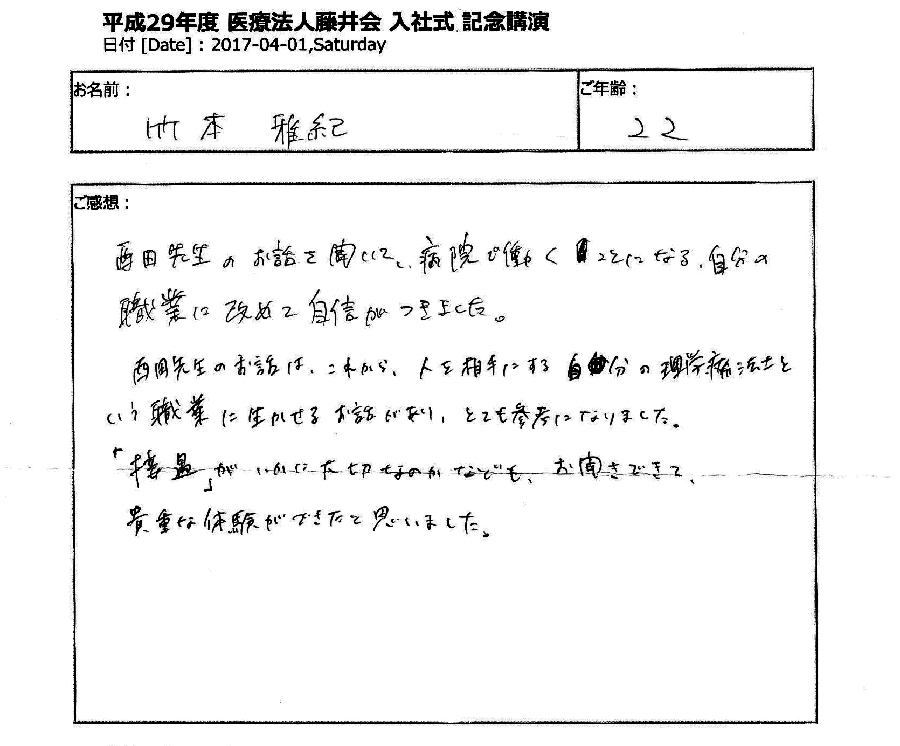 平成29年度 医療法人藤井会 入社式 記念講演
日付 [Date] : 2017-04-01,Saturday
お名前：
竹本 雅紀
ご年齢：
22
ご感想：
西田先生のお話を聞いて、病院で働くことになる、自分の
職業に改めて自信がつきました。
西田先生のお話は、これから、人を相手にする自分の理学療法士と
いう職業に生かせるお話があり、とても参考になりました。
「接遇」がいかに大切なのかなども、お聞きできて、
貴重な体験ができたと思いました。